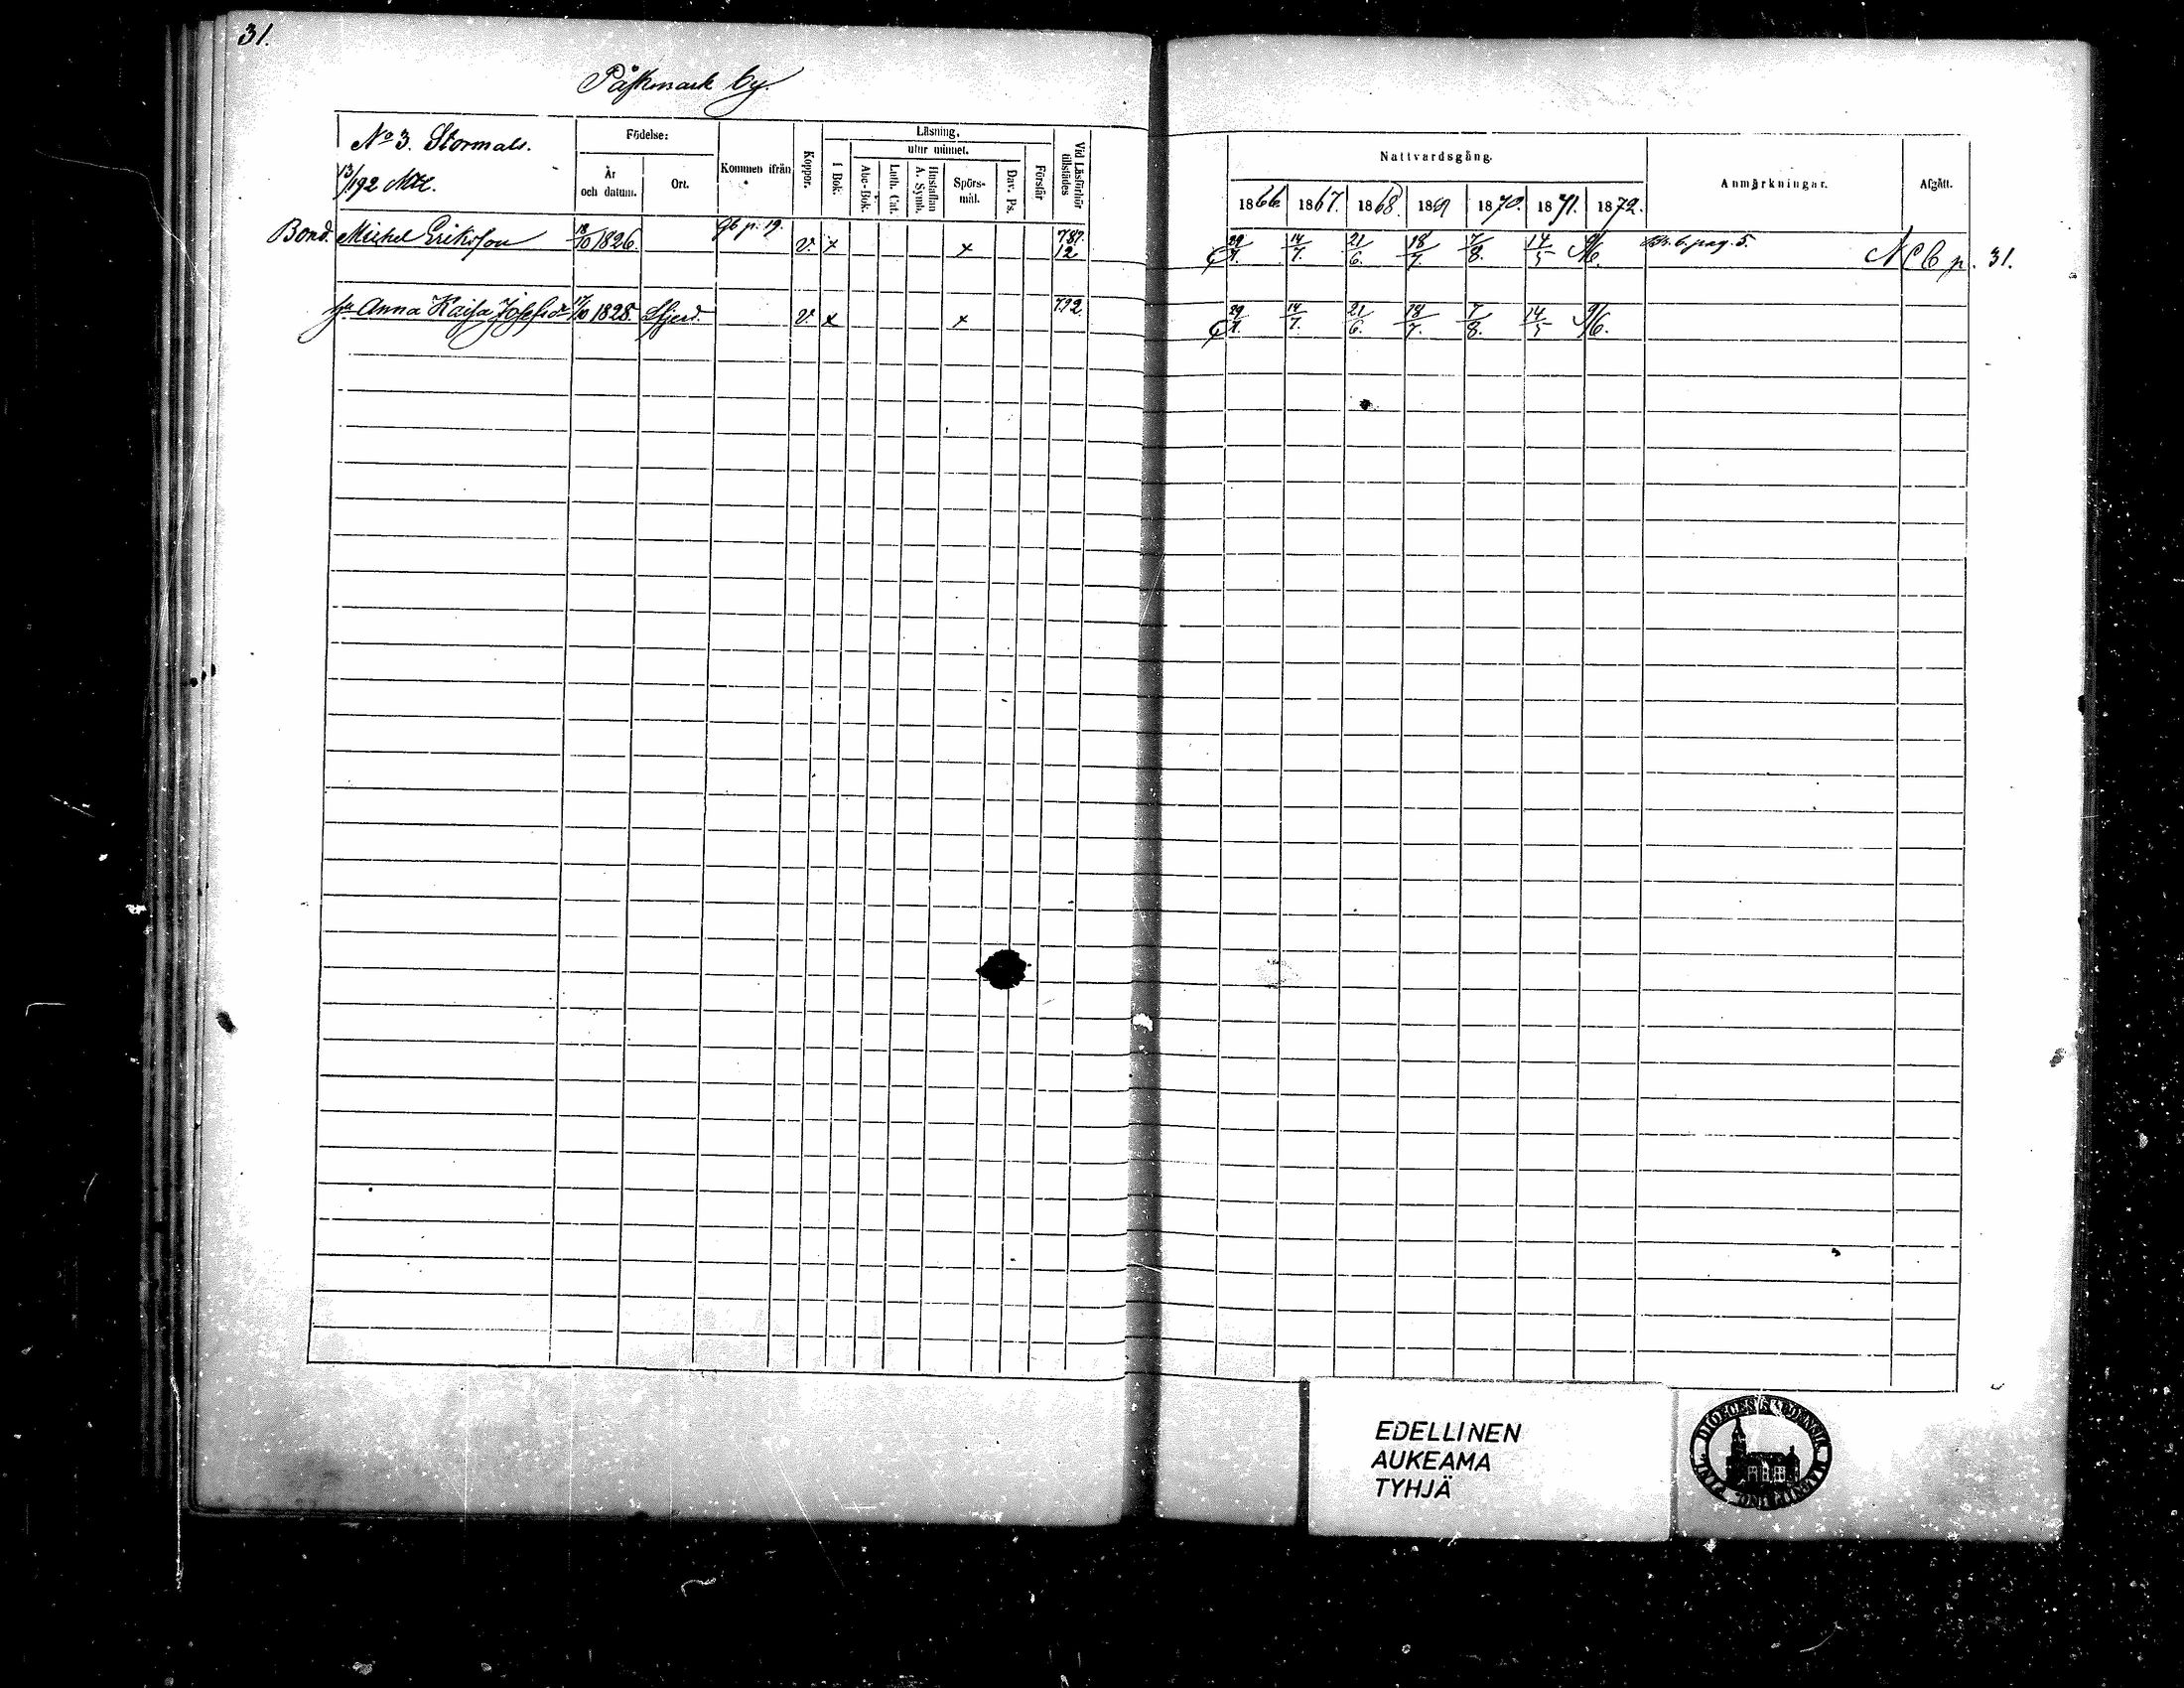 31.
Påskmark by.
No 3. Stormals.
13/192 Mtl.
Födelse:
År och datum.
Ort.
Kommen ifrån
Koppor.
Läsning.
utur minnet.
I Bok.
Abc-Bok.
Luth. Cat.
Hustaflan A. Symb.
Spörs-mål.
Dav. Ps.
Förstår
Vid Läsförhör tillstädes
Nattvardsgång.
1866. 1867. 1868. 1869 1870. 1871. 1872.
Anmärkningar.
Afgått.
Bond. Michel Eriksson 18/10 1826. Gb p. 19. v. x x 787. 12 29/7. 14/7. 21/6. 18/7. 7/8. 14/5 9/6. pag. 5. N C b p. 31.
hu Anna Kaisa Josefsdr 17/10 1828. Sfjerd. v. x x 792 29/7. 14/7. 21/6. 18/7. 7/8. 14/5 9/6.
EDELLINEN
AUKEAMA
TYHJÄ